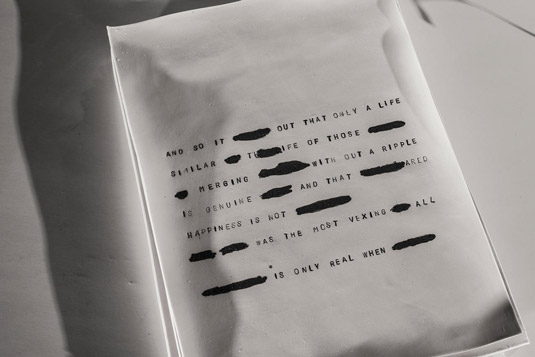 AND SO IT OUT THAT ONLY A LIFE
SIMILAR TO THE LIFE OF THOSE
MERGING WITH OUT A RIPPLE
IS GENUINE AND THAT ARED
HAPPINESS IS NOT
WAS THE MOST VEXING ALL
" IS ONLY REAL WHEN